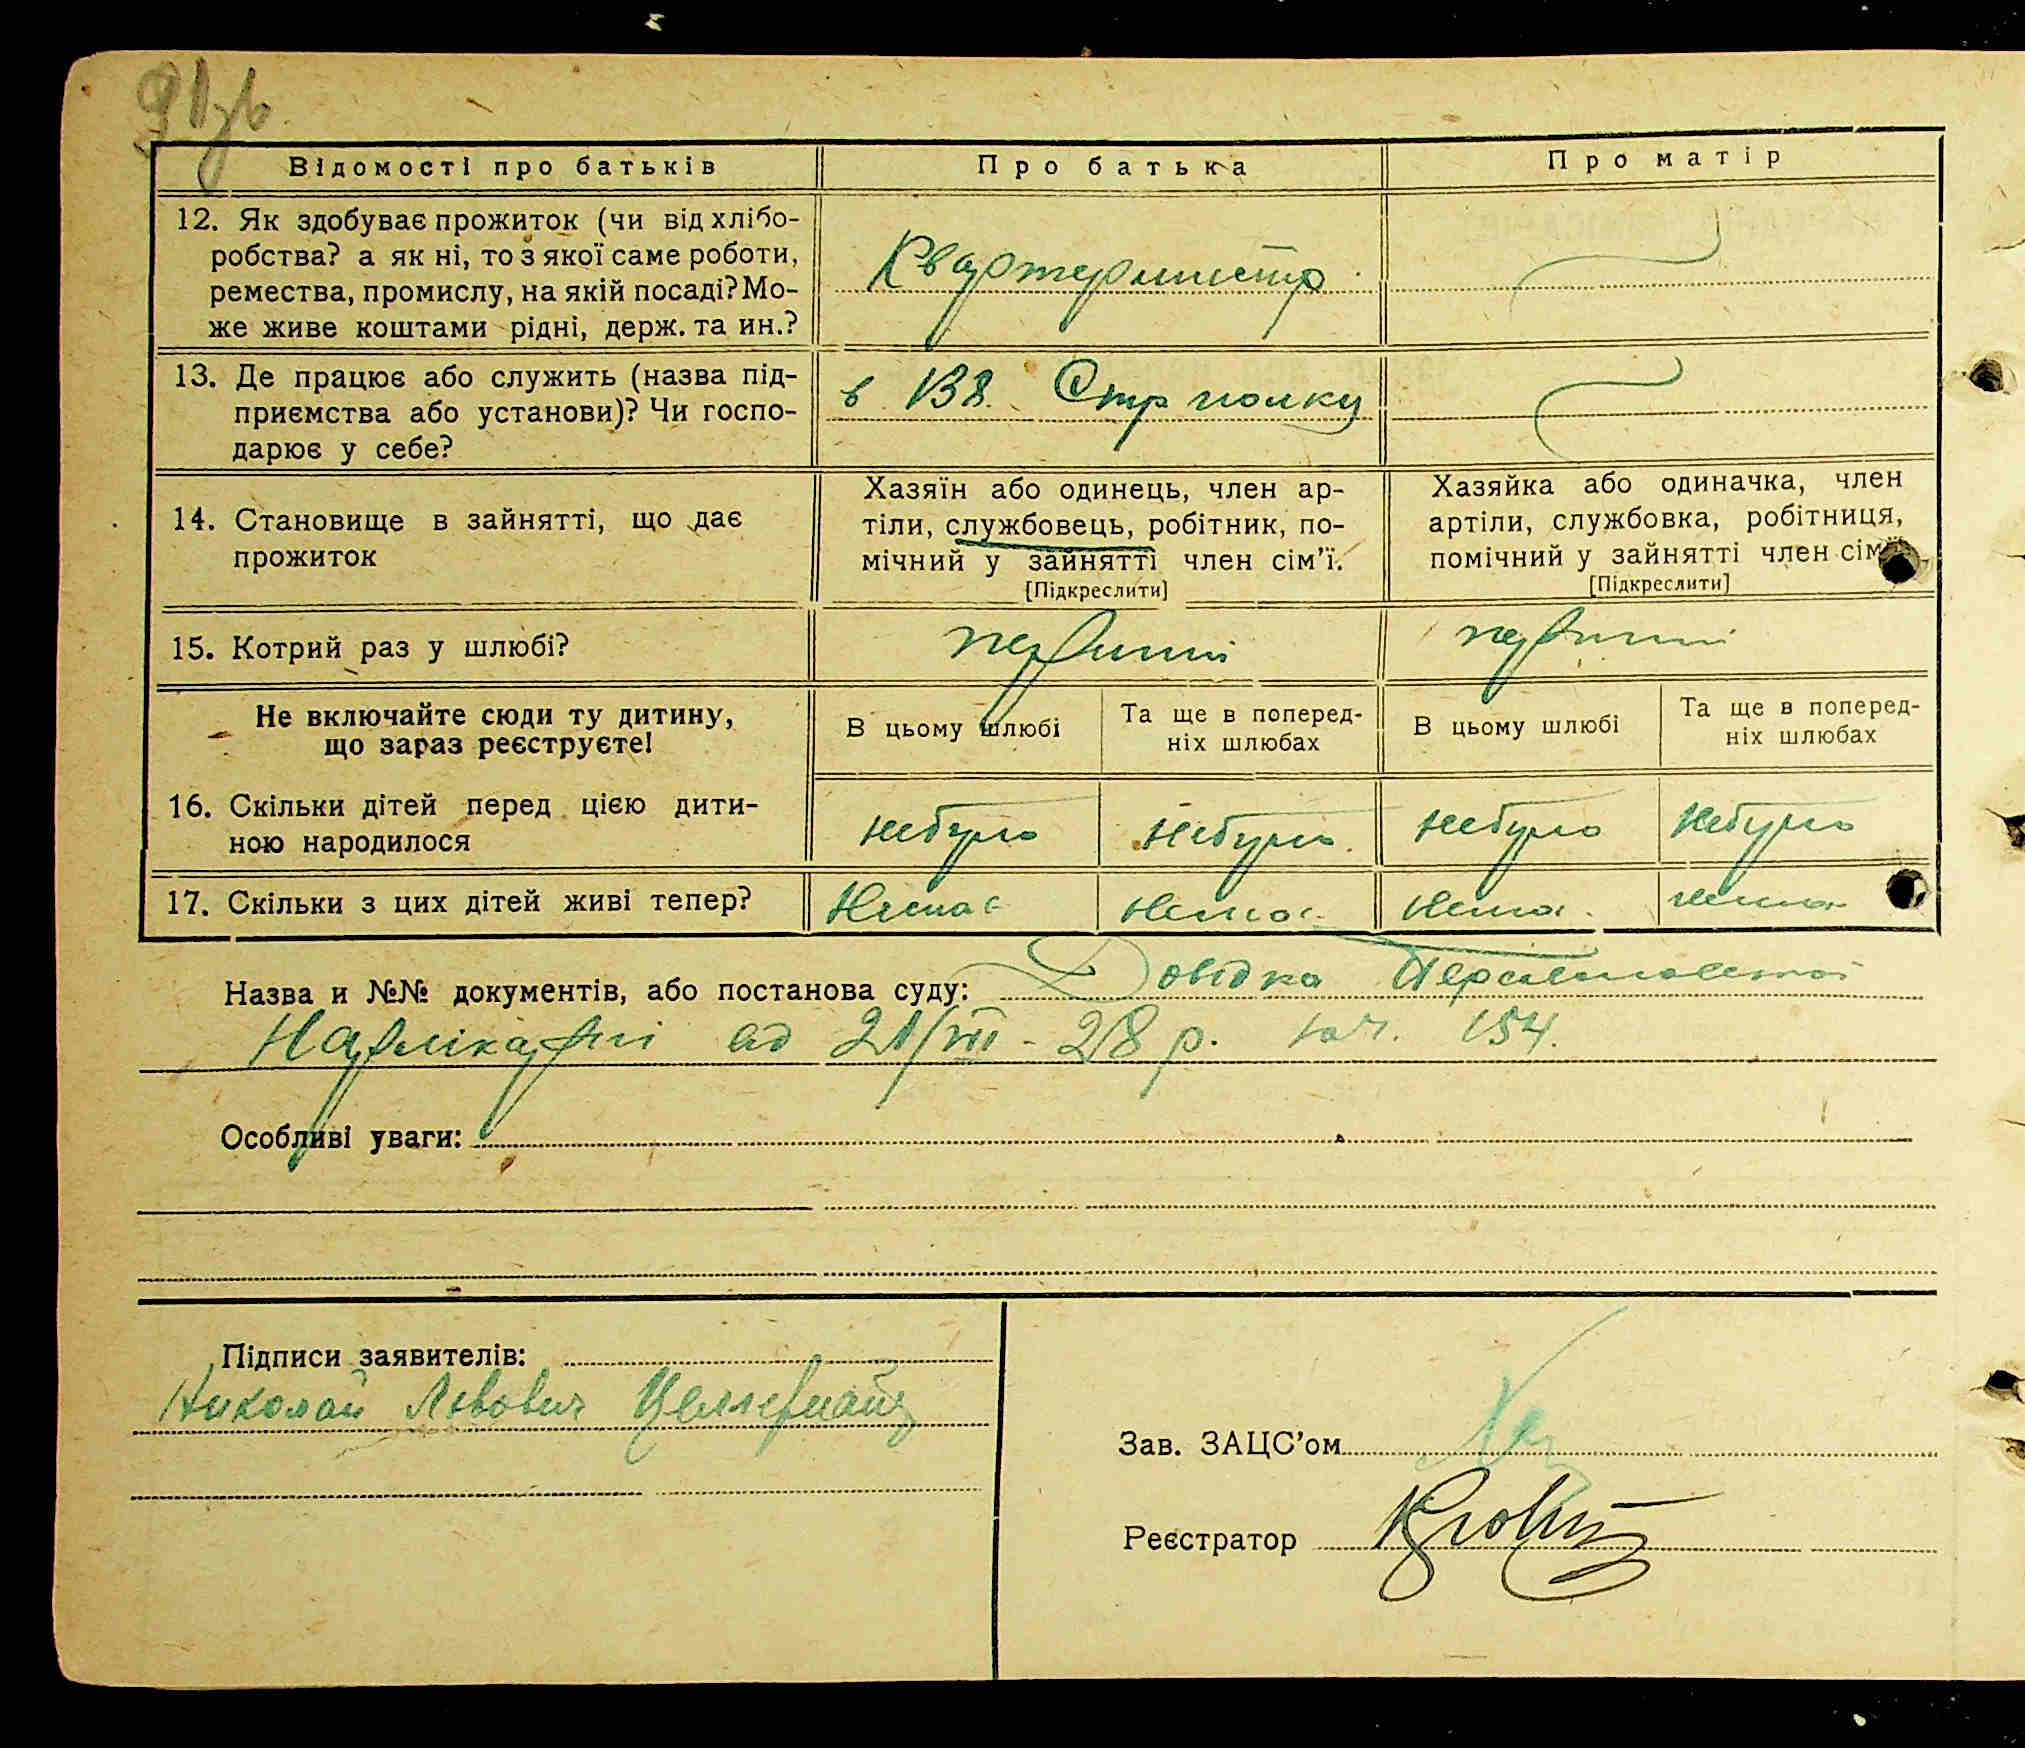 91зв
Відомості про батьків
Про батька
Про матір
12. Як здобуває прожиток (чи від хлібо-
робства? а як ні, то з якої саме роботи,
ремества, промислу, на якій посаді? Мо-
же живе коштами рідні, держ. та ин.?
Квартермистр
13. Де працює або служить (назва під-
приємства або установи)? Чи госпо-
дарює у себе?
в 138 Стр полку
14. Становище в зайнятті, що дає
прожиток
Хазяїн або одинець, член ар-
тіли, службовець, робітник, по-
мічний у зайнятті член сім'ї.
[Підкреслити]
Хазяйка або одиначка, член
артіли, службовка, робітниця,
помічний у зайнятті член сім'ї
[Підкреслити]
15. Котрий раз у шлюбі?
первший
первший
Не включайте сюди ту дитину,
що зараз реєструєте!
В цьому шлюбі
Та ще в поперед-
ніх шлюбах
В цьому шлюбі
Та ще в поперед-
ніх шлюбах
16. Скільки дітей перед цією дити-
ною народилося
небуло
небуло
небуло
небуло
17. Скільки з цих дітей живі тепер?
Немає
Немає
Нема
нема
Назва и №№ документів, або постанова суду: Довідка
од 21/VII - 28 р. 154.
Особливі уваги:
Підписи заявителів:
Николай Львович
Зав. ЗАЦС'ом
Реєстратор